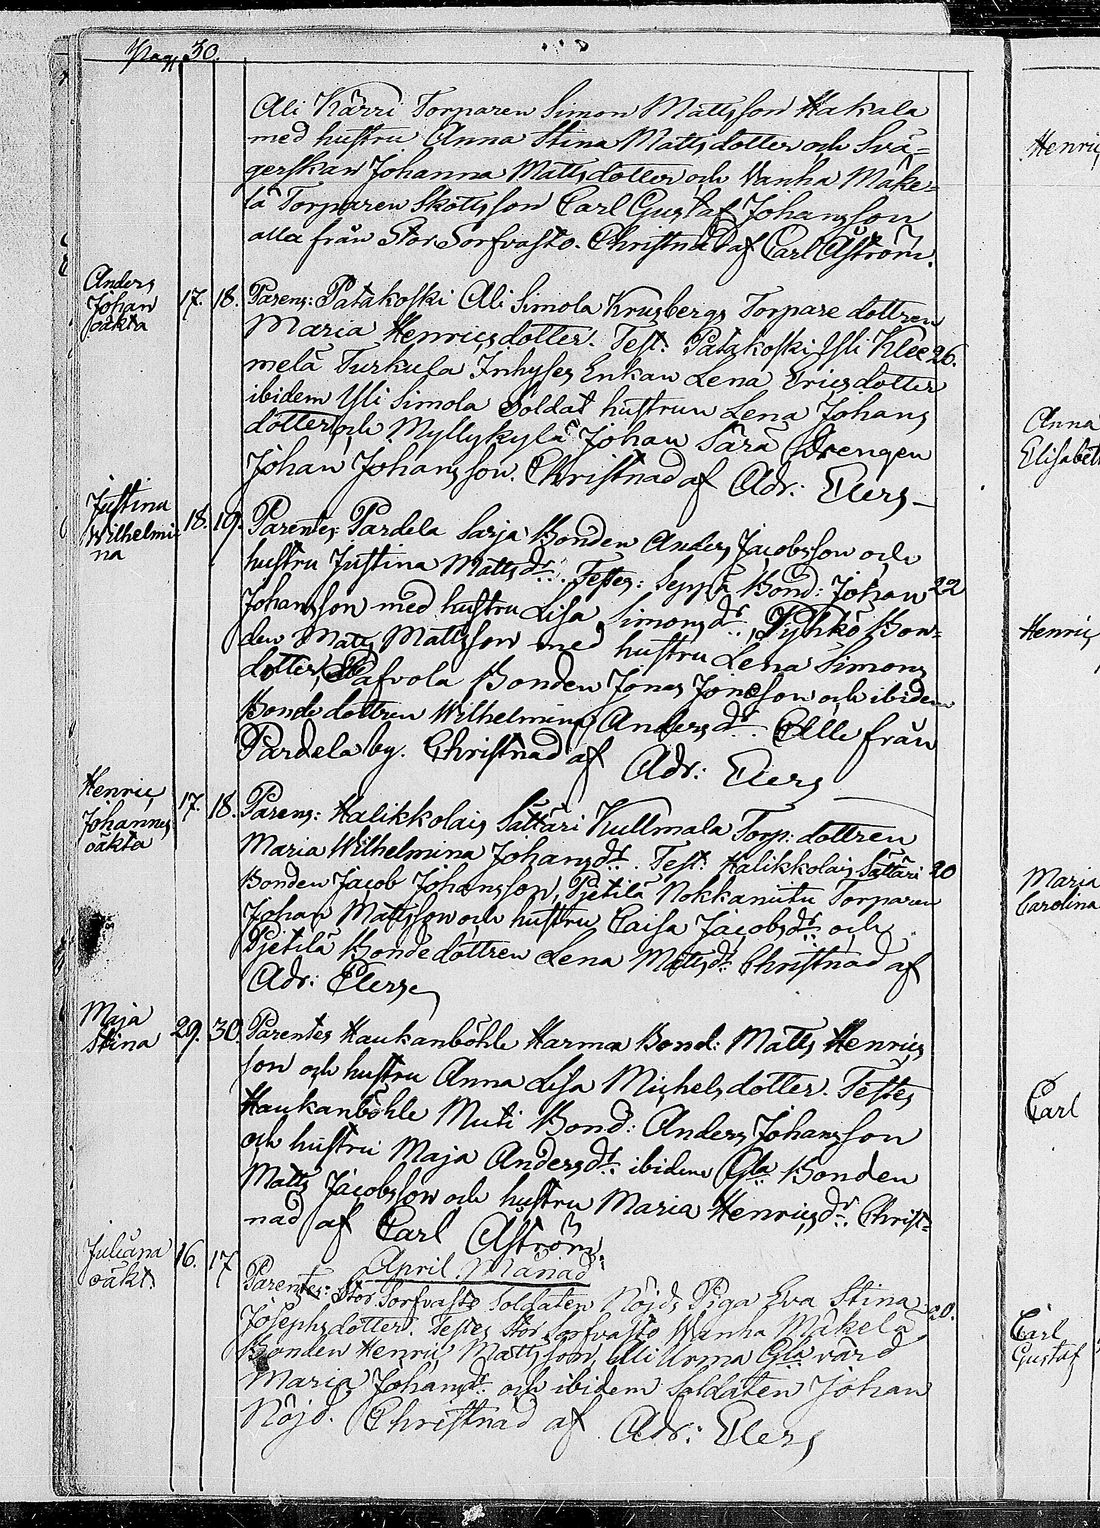 Pag. 30.
Ali Kärri Torparen Simon Mattsson Hakala
med hustru Anna Stina Mattsdotter och Svä-
gerskan Johanna Mattsdotter och Vanha Mäke-
lä Torparen Skottsson Carl Gustaf Johansson
alla från Stor Sorfvasto. Christnad af Carl Åström.
Anders
Johan
oäkta
17. 18. Parens: Patakoski Ali Simola Krusbergs Torpare dottren
Maria Henricsdotter. Test: Patakoski Yli Klee 26.
melä Turkula Inhyses Enkan Lena Ericsdotter
ibidem Yli Simola Soldat hustrun Lena Johans
dotter och Myllykylä Johan Sara Drengen
Johan Johansson. Christnad af Adr: Elers
Justina
Wilhelmi
na
18. 19. Parentes Pardela Sarja Bonden Anders Jacobsson och
hustru Justina Mattsdr. Testes: Seppä Bond: Johan 22
Johansson med hustru Lisa Simonsdr, Pyhkö Bon-
den Matts Mattsson med hustru Lena Simons
dotter, Pafvola Bonden Jonas Jonsson och ibidem
Bonde dottren Wilhelmina Andersdr. Alle från
Pardela by. Christnad af Adr: Elers
Henric
Johannes
oäkta
17. 18. Parens: Halikkolais Sattari Kullmala Torp: dottren
Maria Wilhelmina Johansdr. Test: Halikkolais Sattari 20
Bonden Jacob Johansson, Pjetilä Nokkamutu Torparen
Johan Mattsson och hustru Caisa Jacobsdr och
Pjetilä Bondedottren Lena Mattsdr. Christnad af
Adr: Elers
Maja
Stina
29. 30. Parentes Haukanböhle Harma Bond: Matts Henrics
son och hustru Anna Lisa Michelsdotter. Testes
Haukanböhle Muti Bond: Anders Johansson
och hustru Maja Andersdr. ibidem Gla Bonden
Matts Jacobsson och hustru Maria Henricsdr. Christ-
nad af Carl Åström.
April Månad
Juliana
oäkt.
16. 17 Parentes: Stor Sorfvasto Soldaten Nöjds Piga Eva Stina 20.
Josephsdotter. Testes Stor Sorfvasto Wanha Mäkelä
Bonden Henric Mattsson, Ali Urma Gla värd
Maria Johansdr. och ibidem Soldaten Johan
Nöjd. Christnad af Adr: Elers
Henric
Anna
Elisabet
Henric
Maria
Carolina
Carl
Carl
Gustaf